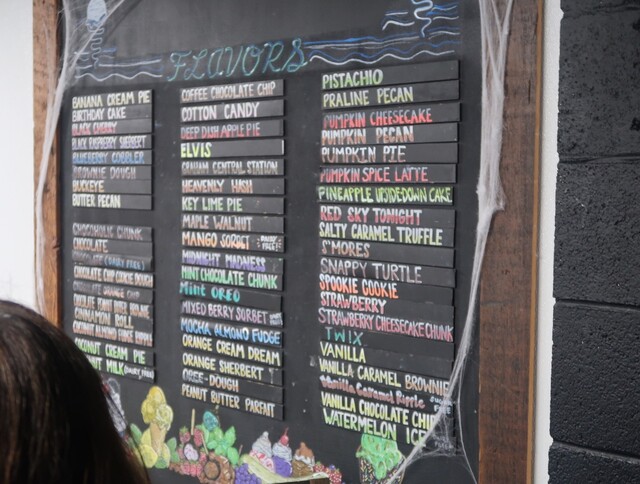 FLAVORS
BANANA CREAM PIE
BIRTHDAY CAKE
BLACK CHERRY
BLACK RASPBERRY SHERBET
BLUEBERRY COBBLER
BROWNIE DOUGH
BUCKEYE
BUTTER PECAN
CHOCOHOLIC CHUNK
CHOCOLATE
CHOCOLATE (DAIRY FREE)
CHOCOLATE CHIP COOKIE DOUGH
CINNAMON ROLL
COCONUT CREAM PIE
MILK (DAIRY FREE)
COFFEE CHOCOLATE CHIP
COTTON CANDY
DEEP DISH APPLE PIE
ELVIS
GRAHAM CENTRAL STATION
HEAVENLY HASH
KEY LIME PIE
MAPLE WALNUT
MANGO SORBET DAIRY FREE
MIDNIGHT MADNESS
MINT CHOCOLATE CHUNK
MINT OREO
MIXED BERRY SORBET
MOCHA ALMOND FUDGE
ORANGE CREAM DREAM
ORANGE SHERBERT
OREE-DOUGH
PEANUT BUTTER PARFAIT
PISTACHIO
PRALINE PECAN
PUMPKIN CHEESECAKE
PUMPKIN PECAN
PUMPKIN PIE
PUMPKIN SPICE LATTE
PINEAPPLE UPSIDEDOWN CAKE
RED SKY TONIGHT
SALTY CARAMEL TRUFFLE
S'MORES
SNAPPY TURTLE
SPOOKIE COOKIE
STRAWBERRY
STRAWBERRY CHEESECAKE CHUNK
TWIX
VANILLA
VANILLA CARAMEL BROWNIE
Vanilla Caramel Ripple SUGAR FREE
VANILLA CHOCOLATE CHIP
WATERMELON ICE